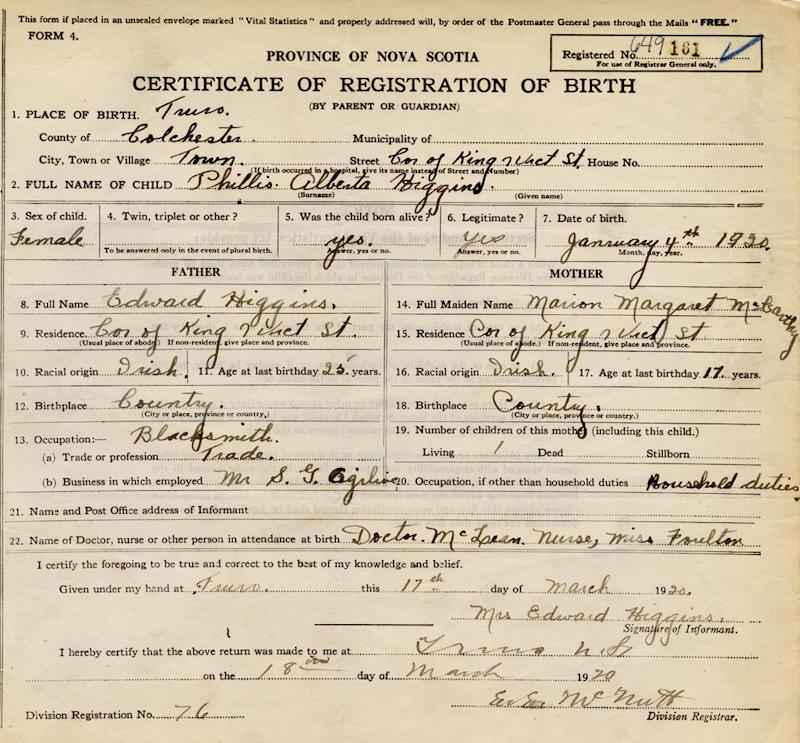 This form if placed in an unsealed envelope marked "Vital Statistics" and properly addressed will, by order of the Postmaster General pass through the Mails "FREE."
FORM 4.
PROVINCE OF NOVA SCOTIA
Registered No. 649 161
For use of Registrar General only.
CERTIFICATE OF REGISTRATION OF BIRTH
(BY PARENT OR GUARDIAN)
1. PLACE OF BIRTH. Truro.
County of Colchester. Municipality of
City, Town or Village Town. Street Cor of King & Vict St. House No.
(If birth occurred in a hospital, give its name instead of Street and Number)
2. FULL NAME OF CHILD Phillis Alberta Higgins.
(Surname) (Given name)
3. Sex of child. 4. Twin, triplet or other? 5. Was the child born alive? 6. Legitimate? 7. Date of birth.
Female yes. Yes January 4th 1920.
To be answered only in the event of plural birth. Answer, yes or no. Answer, yes or no. Month, day, year.
FATHER MOTHER
8. Full Name Edward Higgins. 14. Full Maiden Name Marion Margaret McCarthy
9. Residence Cor of King & Vict St. 15. Residence Cor of King & Vict St
(Usual place of abode.) If non-resident, give place and province. (Usual place of abode.) If non-resident, give place and province.
10. Racial origin Irish. 11. Age at last birthday 25 years. 16. Racial origin Irish. 17. Age at last birthday 17 years.
12. Birthplace Country. 18. Birthplace Country.
(City or place, province or country,) (City or place, province or country.)
13. Occupation:— Blacksmith. 19. Number of children of this mother (including this child.)
(a) Trade or profession Trade. Living 1 Dead Stillborn
(b) Business in which employed Mr S. G. 20. Occupation, if other than household duties Household duties
21. Name and Post Office address of Informant
22. Name of Doctor, nurse or other person in attendance at birth Doctor. McLean. Nurse, Miss Foulton
I certify the foregoing to be true and correct to the best of my knowledge and belief.
Given under my hand at Truro. this 17th day of March 1920.
Mrs Edward Higgins.
Signature of Informant.
I hereby certify that the above return was made to me at Truro N.S
on the 18 day of March 1920
McNutt
Division Registration No. 76 Division Registrar.